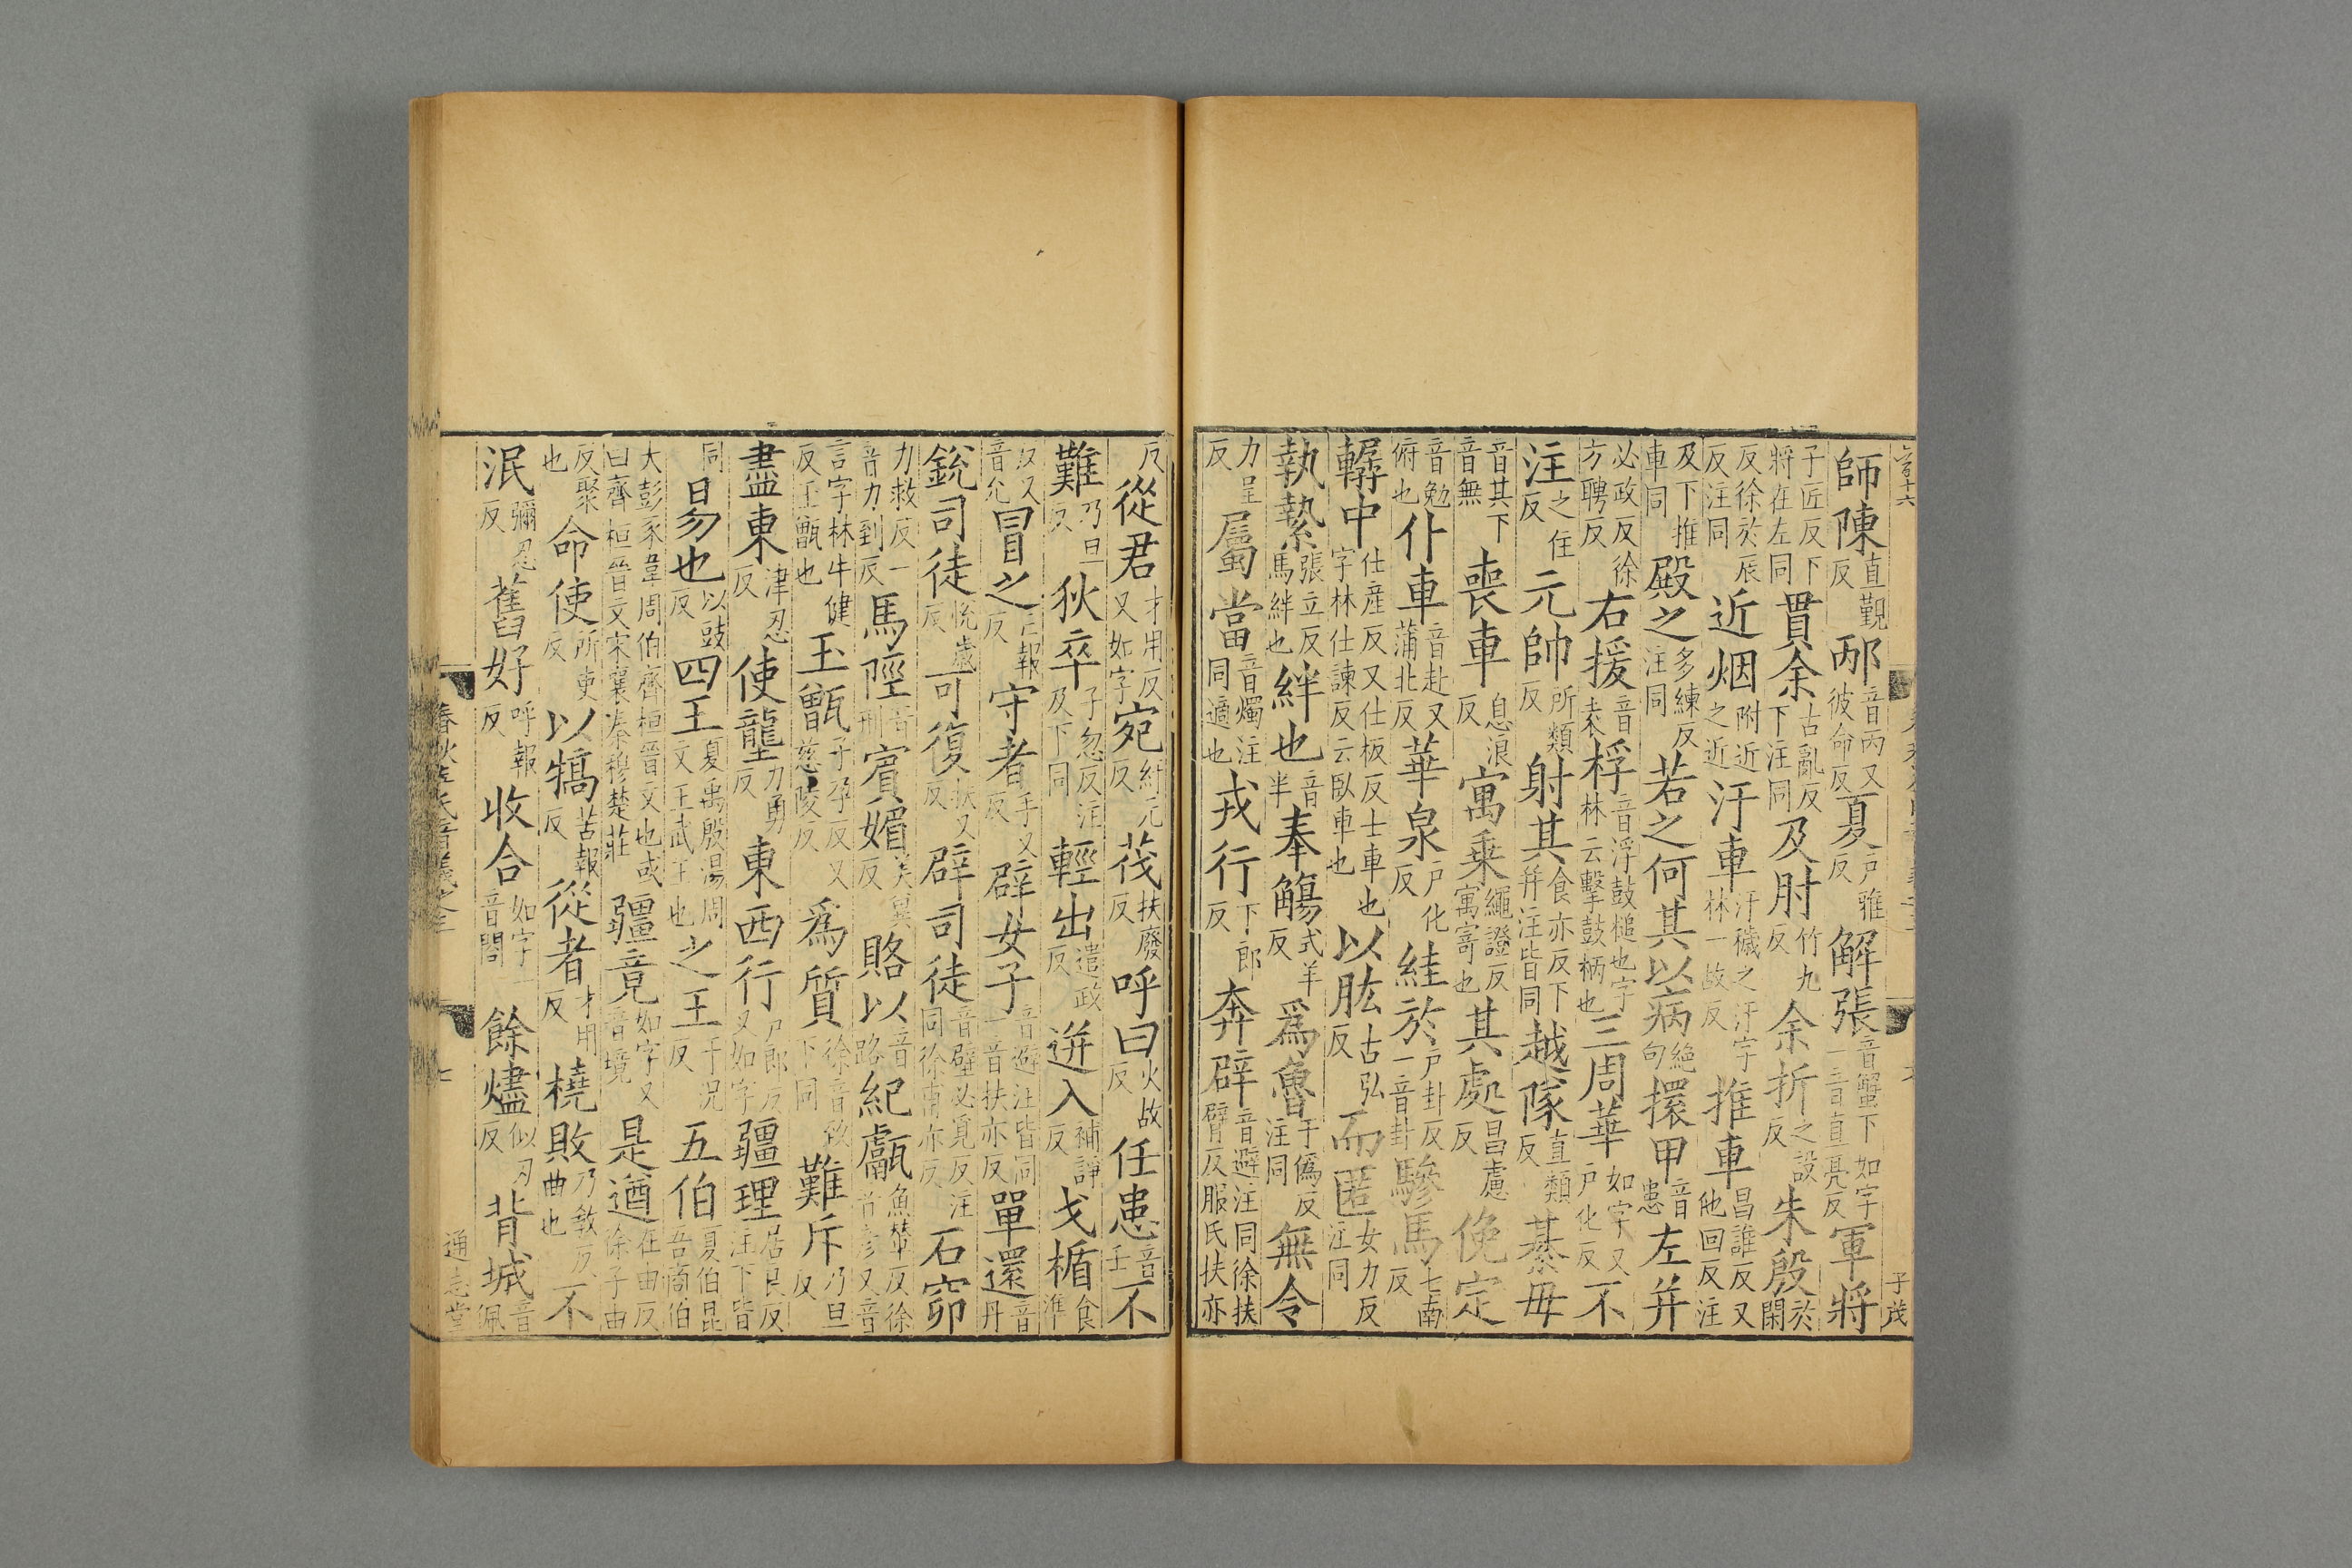 師陳直覲反邴音丙又彼命反夏戶雅反解張音蟹下如字一音直亮反軍將
子匠反下將在左同貫余古亂反下注同及肘竹九反余折之設反朱殷於閑
反徐於辰反注同近烟附近之近汙車汙穢之汙字林一故反推車昌誰反又他回反注
及下推車同殿之多練反注同若之何其以病絕句擐甲音患左并
必政反徐方聘反右援音袁桴音浮鼓槌也字林云擊鼓柄也三周華如字又戶化反不
注之住反元帥所類反射其食亦反下并注皆同越隊直類反綦毋
音其下音無喪車息浪反寓乘繩證反寓寄也其處昌慮反俛定
音勉俯也仆車音赴又蒲北反華泉戶化反絓於戶卦反一音卦驂馬七南反
轏中仕產反又仕板反士車也字林仕諫反云臥車也以肱古弘反而匿女力反注同
執縶張立反馬絆也絆也音半奉觴式羊反爲魯于僞反注同無令
力呈反屬當音燭注同適也戎行下郎反奔辟音避注同徐扶臂反服氏扶亦
反從君才用反又如字宛紆元反茷扶廢反呼曰火故反任患音壬不
難乃旦反狄卒子忽反注及下同輕出遣政反逬入補諍反戈楯食準
反又音允冒之亡報反守者手又反辟女子音避注皆同一音扶亦反單還音丹
銳司徒悅歲反可復扶又反辟司徒音壁必覓反注同徐甫亦反石窌
力救反一音力到反馬陘音刑賓媚美冀反賂以音路紀甗魚輦反徐音彥又音
言字林牛健反玉甑也玉甑子孕反又慈陵反爲質徐音致下同難斥乃旦反
盡東津忍反使壟力勇反東西行戶郎反又如字疆理居良反注下皆
同易也以豉反四王夏禹殷湯周文王武王也之王于況反五伯夏伯昆吾商伯
大彭豕韋周伯齊桓晉文也或曰齊桓晉文宋襄秦穆楚莊疆竟如字又音境是遒在由反徐子由
反聚也命使所使反以犒苦報反從者才用反橈敗乃教反曲也不
泯彌忍反舊好呼報反收合如字一音閤餘燼似刃反背城音佩
通志堂